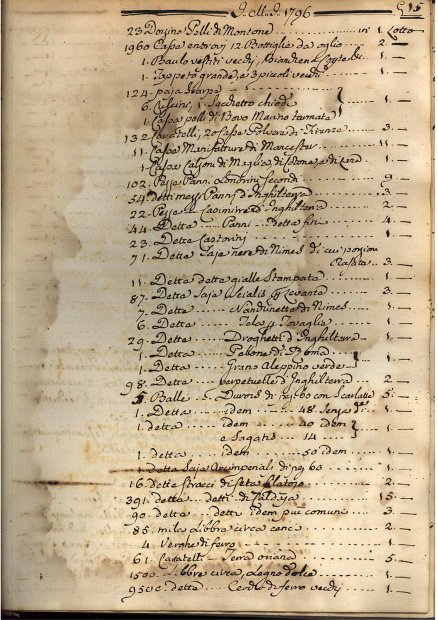 1796 15
23 Dozine Pelli di Montone in 1 Lotto
1960 Cassa entrovi 12 Bottiglie da oglio 2
1 Baulo vestiti vecchi, Biancheria
1 Tappeto grande, e 3 piccoli vecchi 1
124 paja Scarpe
6 Cuscini, 1 Sacchetto chiodi 1
1 Cassa pelli di Bovo Marino
132 Caratelli, 20 Casse Polvare di Firenze 3
11 Casse Manifatture di Mancester 11
1 Cassa Calzoni di Maglia di Cottone, e di Lana 1
102 Pezze Panni Londrini Secondi 9
54 detti mezzi Panni d'Inghilterra 3
22 Pezze Casimirre d'Inghilterra 2
44 Dette Panni dette fini 4
23 Dette Castorini 1
71 Dette Saje nere di Nimes di cui porzion
3
11 Dette dette gialle Stampate 1
87 Dette Saja p Levante 3
7 Dette di Nimes 1
6 Dette Tela p Tovaglie 1
29 Dette Droghetti d'Inghilterra 1
1 Detta Pellone di Roma
1 Detta Grano Aleppino verde 1
98 Dette perpetuelle d'Inghilterra 2
5 Balle Durois di pez 60 con Scarlatte 5
1 Detta idem 48 Senza de
1 detta idem 40 idem
e Sagatis 14 1
1 detta idem 50 idem
1 detta Saja Imperiali di pez 60 1
16 dette Stracci di Seta 2
391 dette detti di 15
90 dette detti idem piu comuni 3
85 mila Libbre circa 2
4 Verghe di ferro 1
61 Caratelli Terra oriana 5
1500 Libbre circa, Legno dolce 1
9500 dette di ferro vecchj 1